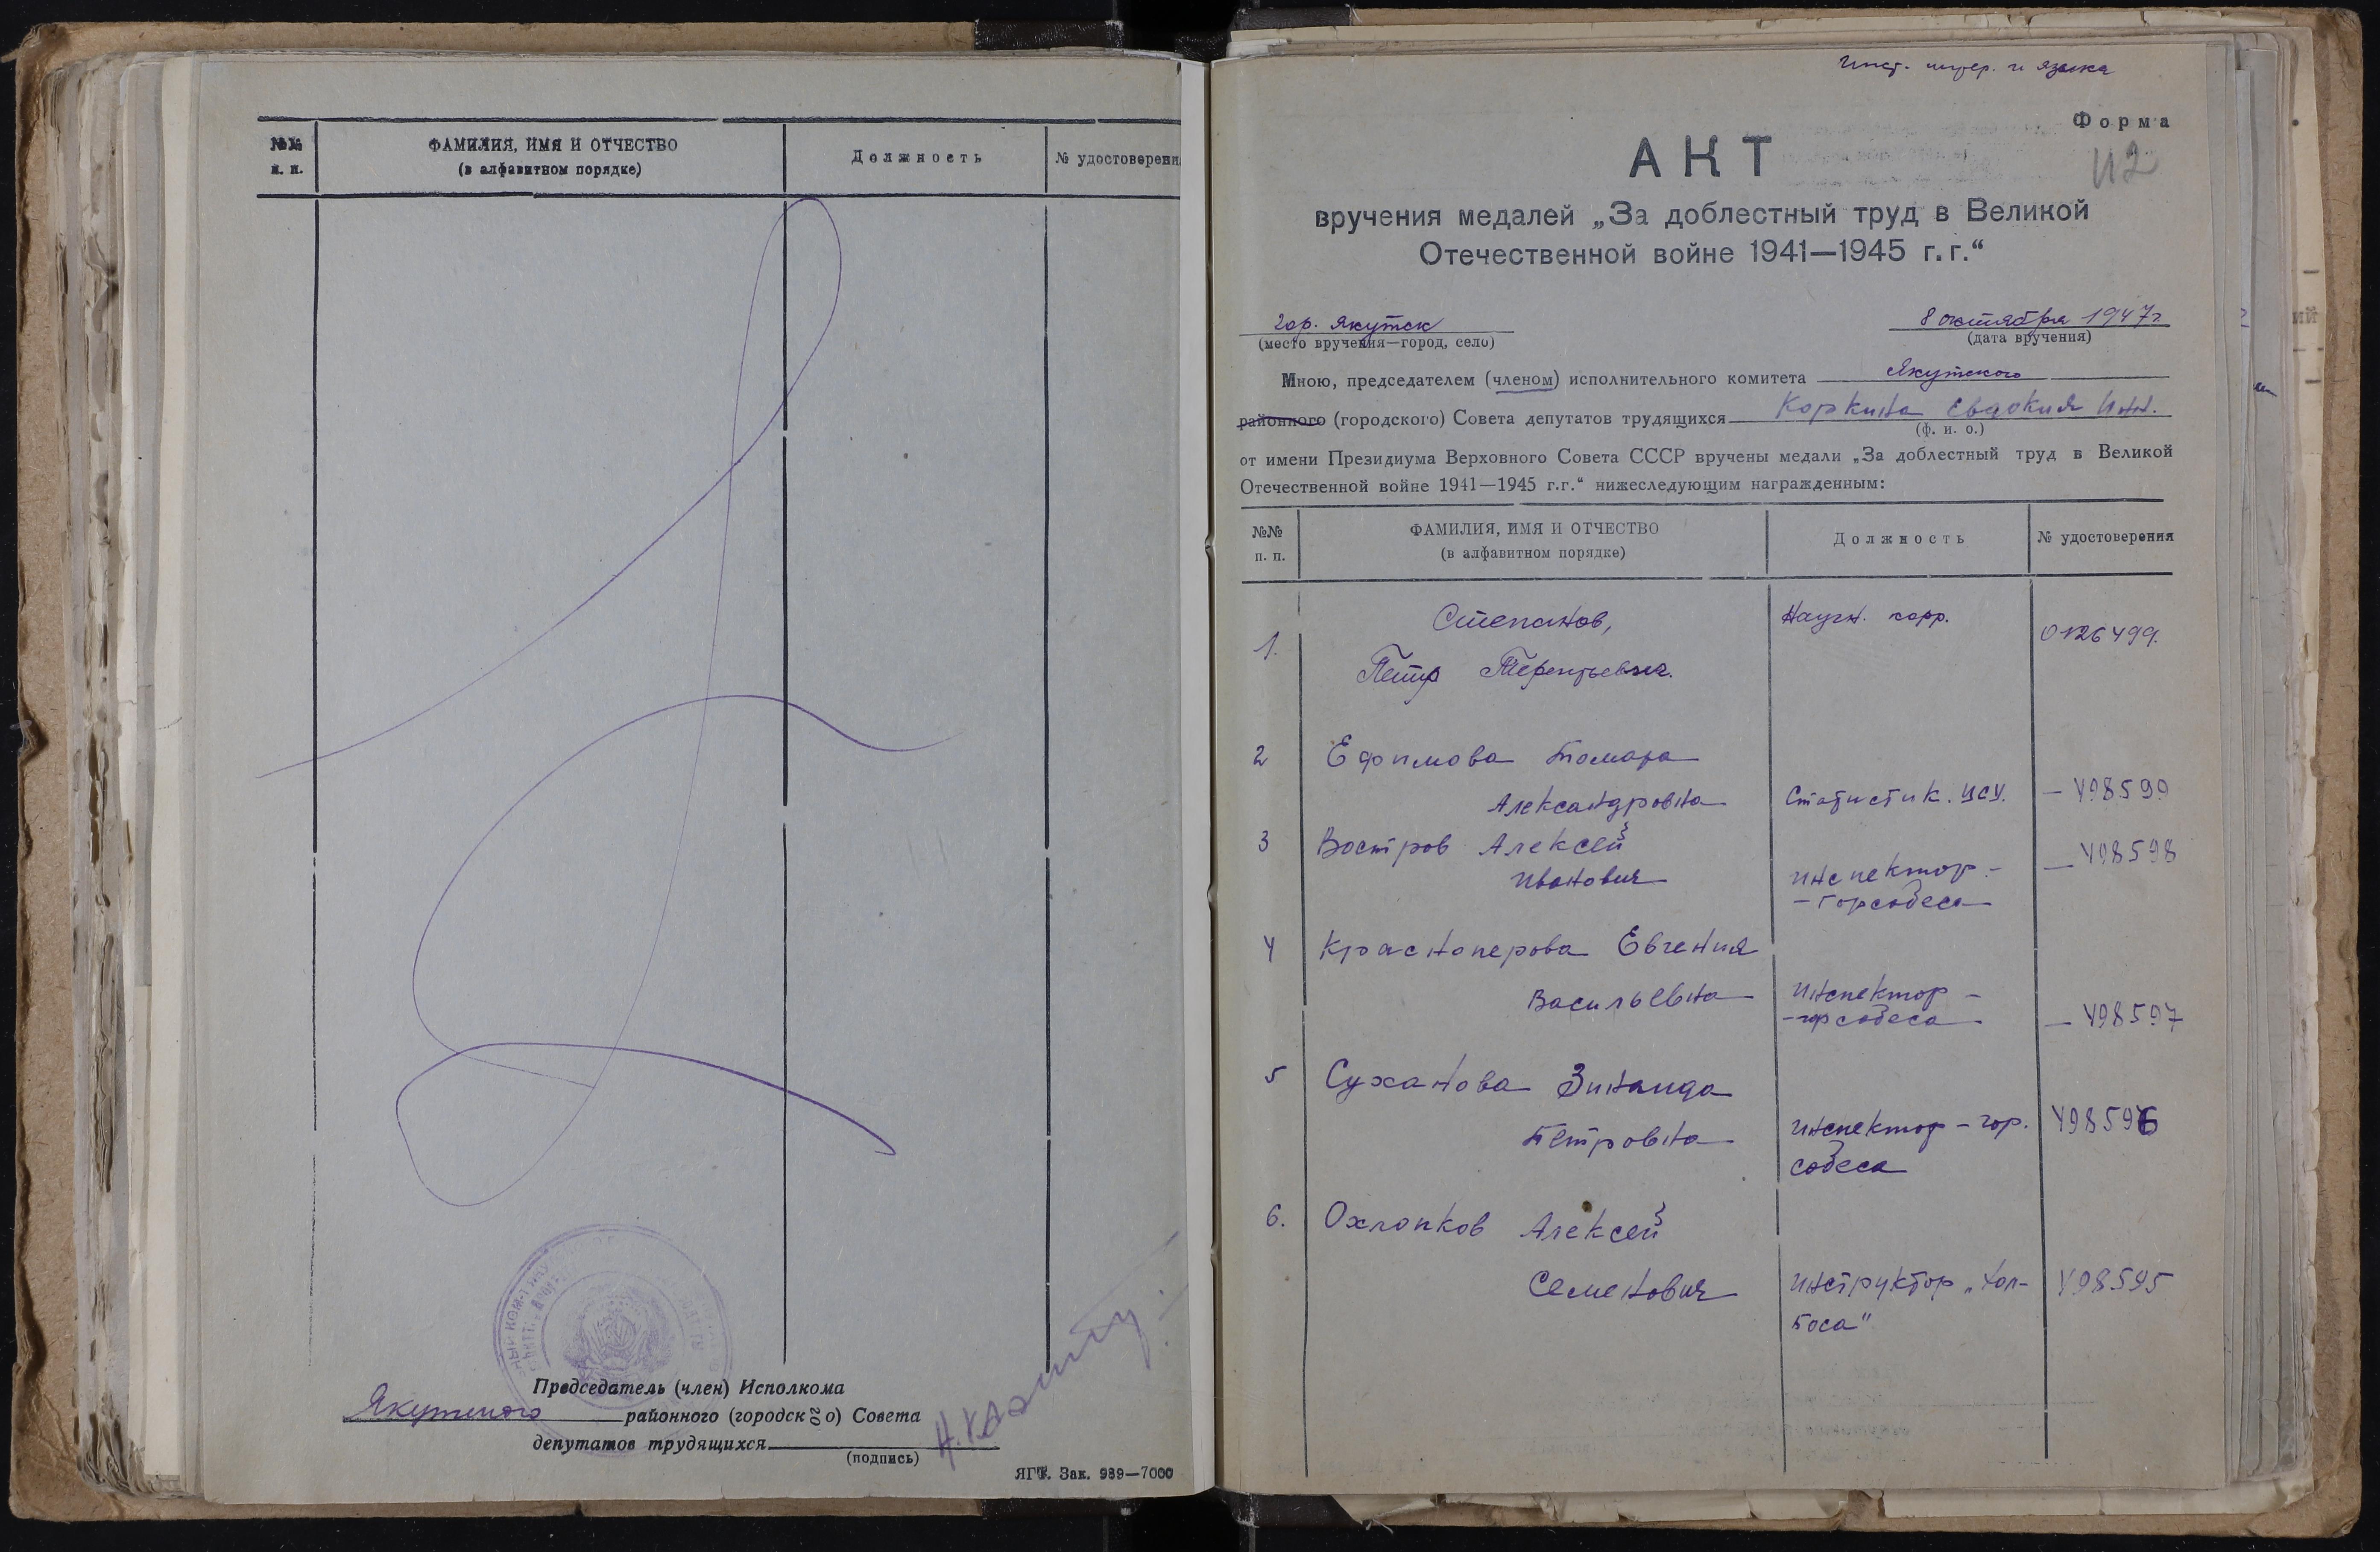 №№
п. п.
ФАМИЛИЯ, ИМЯ И ОТЧЕСТВО
(в алфавитном порядке)
Должность
№ удостоверени
Председатель (член) Исполкома
Якутского районного (городского) Совета
депутатов трудящихся
(подпись)
ЯГТ. Зак. 989—7000
Инст. литер. и языка
Форма
112
АКТ
вручения медалей „За доблестный труд в Великой
Отечественной войне 1941—1945 г.г.“
гор. Якутск
8 октября 1947г.
(место вручения—город, село)
(дата вручения)
Мною, председателем (членом) исполнительного комитета Якутского
районного (городского) Совета депутатов трудящихся Коркина Евдокия Инн.
(ф. и. о.)
от имени Президиума Верховного Совета СССР вручены медали „За доблестный труд в Великой
Отечественной войне 1941—1945 г.г.“ нижеследующим награжденным:
№№
п. п.
ФАМИЛИЯ, ИМЯ И ОТЧЕСТВО
(в алфавитном порядке)
Должность
№ удостоверения
1. Степанов, Научн. корр. 0126499.
Петр Терентьевич.
2 Ефимова Тамара
Александровна Статистик. ЦСУ. — 498599
3 Востров Алексей — 498598
Иванович инспектор -
- горсобеса
4 Красноперова Евгения
Васильевна инспектор -
- горсобеса — 498597
5 Суханова Зинаида
Петровна инспектор - гор. 498596
собеса
6. Охлопков Алексей
Семенович инструктор „Хол-
боса" 498595